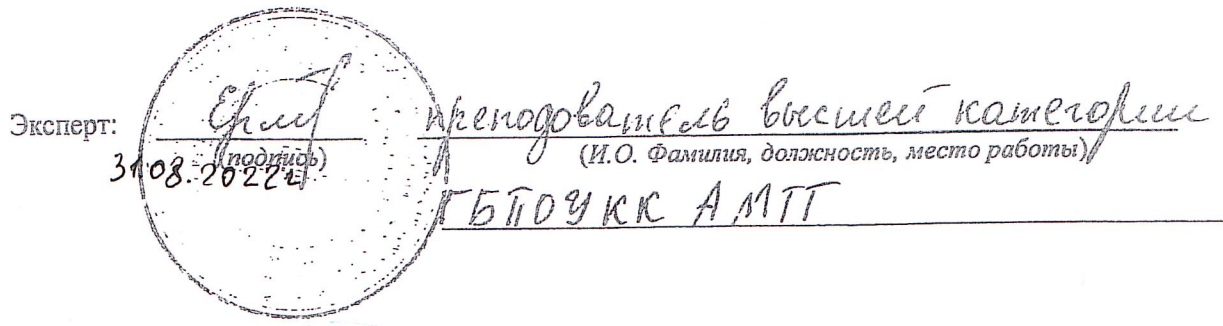 Эксперт: преподаватель высшей категории
(подпись) (И.О. Фамилия, должность, место работы)
31.08.2022г
ГБПОУ КК АМТТ